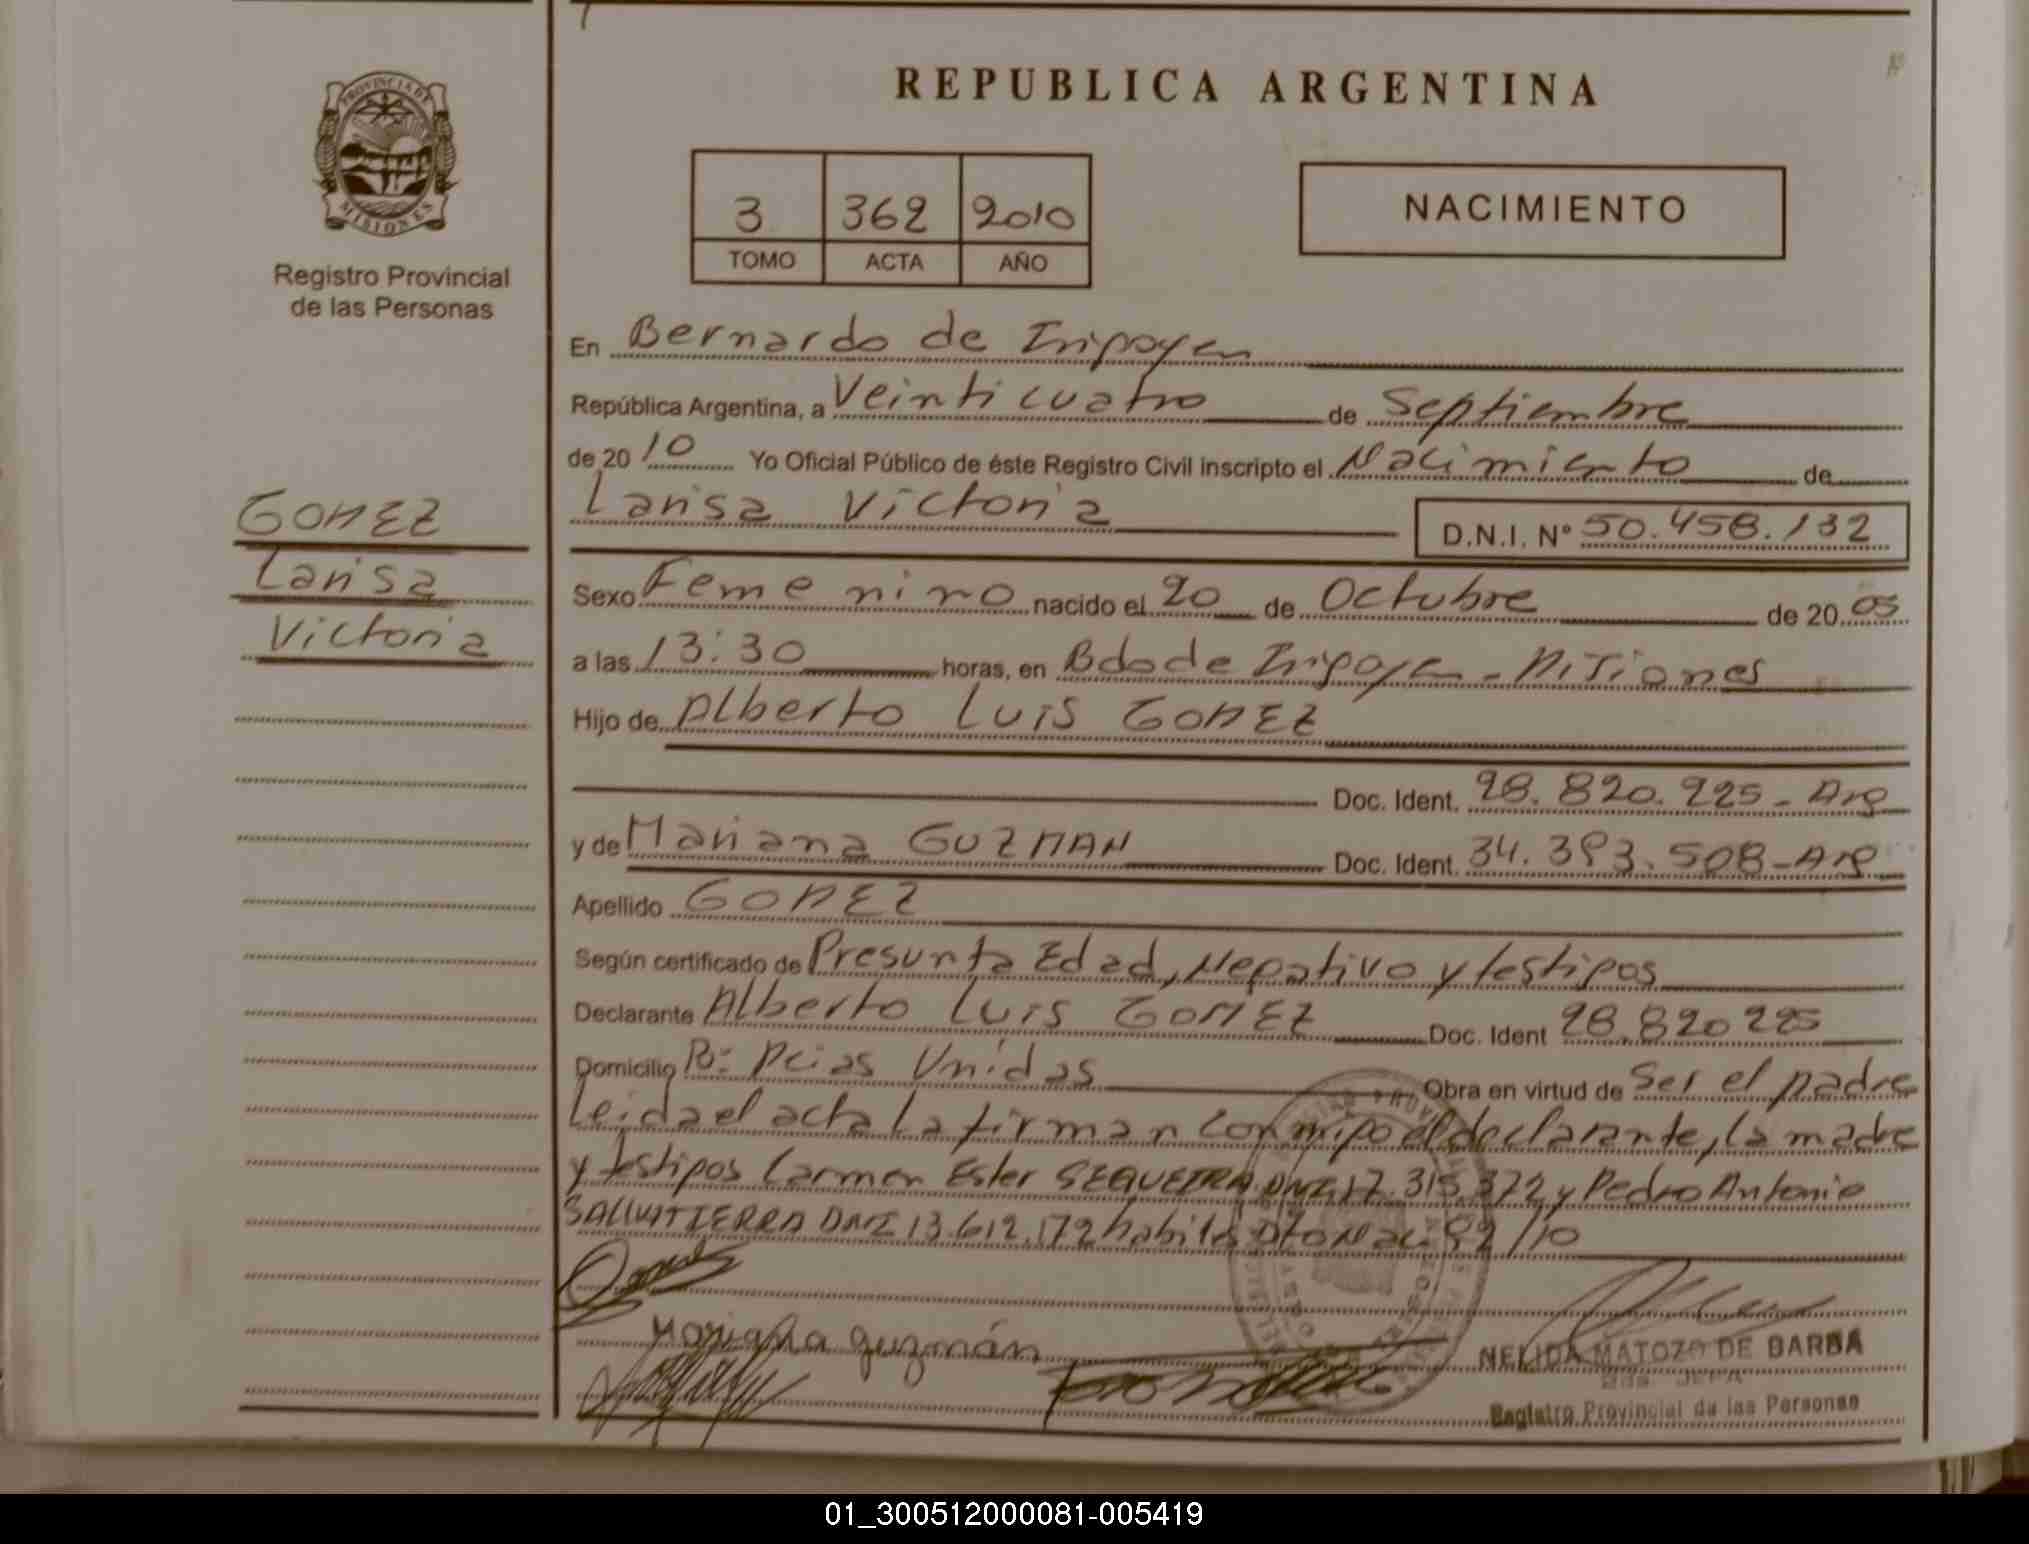 REPUBLICA ARGENTINA
PROVINCIA DE
MISIONES
Registro Provincial
de las Personas
3 362 2010
TOMO ACTA AÑO
NACIMIENTO
GOMEZ
Larisa
Victoria
En Bernardo de Irigoyen
República Argentina, a Veinticuatro de Septiembre
de 20 10 Yo Oficial Público de éste Registro Civil inscripto el Nacimiento de
Larisa Victoria
D.N.I. N° 50.458.132
Sexo Femenino nacido el 20 de Octubre de 20 05
a las 13:30 horas, en Bdo de Irigoyen - Misiones
Hijo de Alberto Luis GOMEZ
Doc. Ident. 28.820.225 - Arg
y de Mariana GUZMAN Doc. Ident. 34.393.508 - Arg
Apellido GOMEZ
Según certificado de Presunta Edad, Negativo y testigos
Declarante Alberto Luis GOMEZ Doc. Ident 28.820 225
Domicilio B: Pcias Unidas Obra en virtud de Ser el padre
Leida el acta La firman conmigo el declarante, la madre
y testigos Carmen Ester SEQUEIRA DNI 17.315.372 y Pedro Antonio
SALVATIERRA DNI 13.612.172 habilita Dto Nac. 92/10
Mariana guzmán
NELIDA MATOZO DE BARBA
JEFA
Registro Provincial de las Personas
01_300512000081-005419